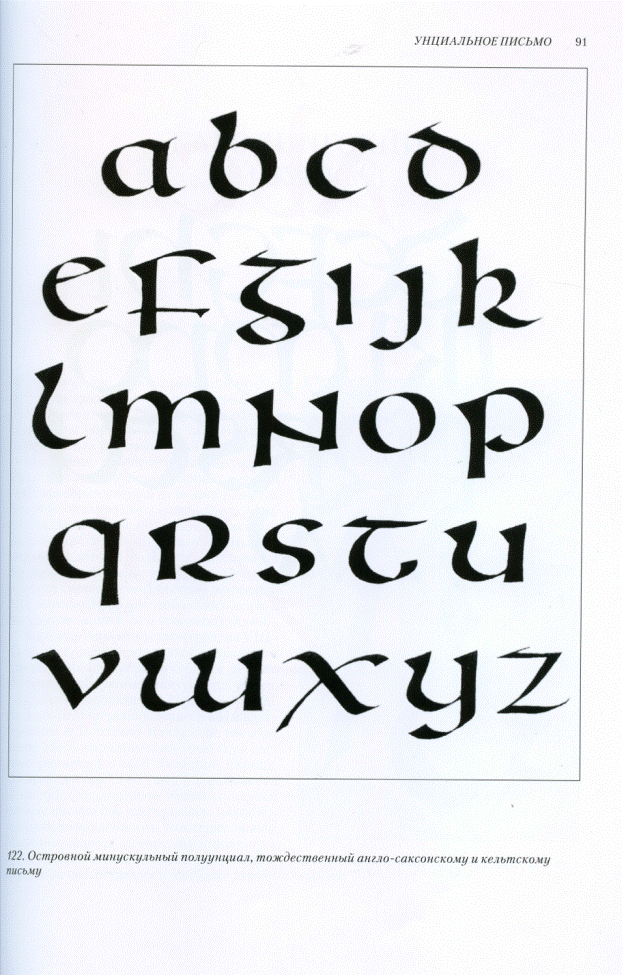 УНЦИАЛЬНОЕ ПИСЬМО 91
a b c d
e f g i j k
l m n o p
q r s t u
v w x y z
122. Островной минускульный полуунциал, тождественный англо-саксонскому и кельтскому
письму